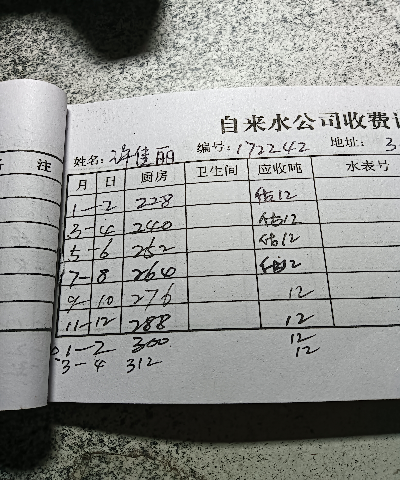 自来水公司收费
姓名：许佳丽 编号：172242 地址：3
注 月 日 厨房 卫生间 应收吨 水表号
1-2 228 估12
3-4 240 估12
5-6 252 估12
7-8 264 估12
9-10 276 12
11-12 288 12
1-2 300 12
3-4 312 12